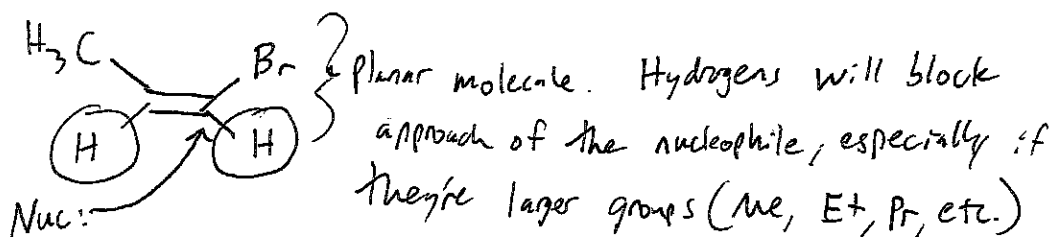 H₃C Br
planar molecule. Hydrogens will block
H H approach of the nucleophile, especially if
they're larger groups (Me, Et, Pr, etc.)
Nuc: